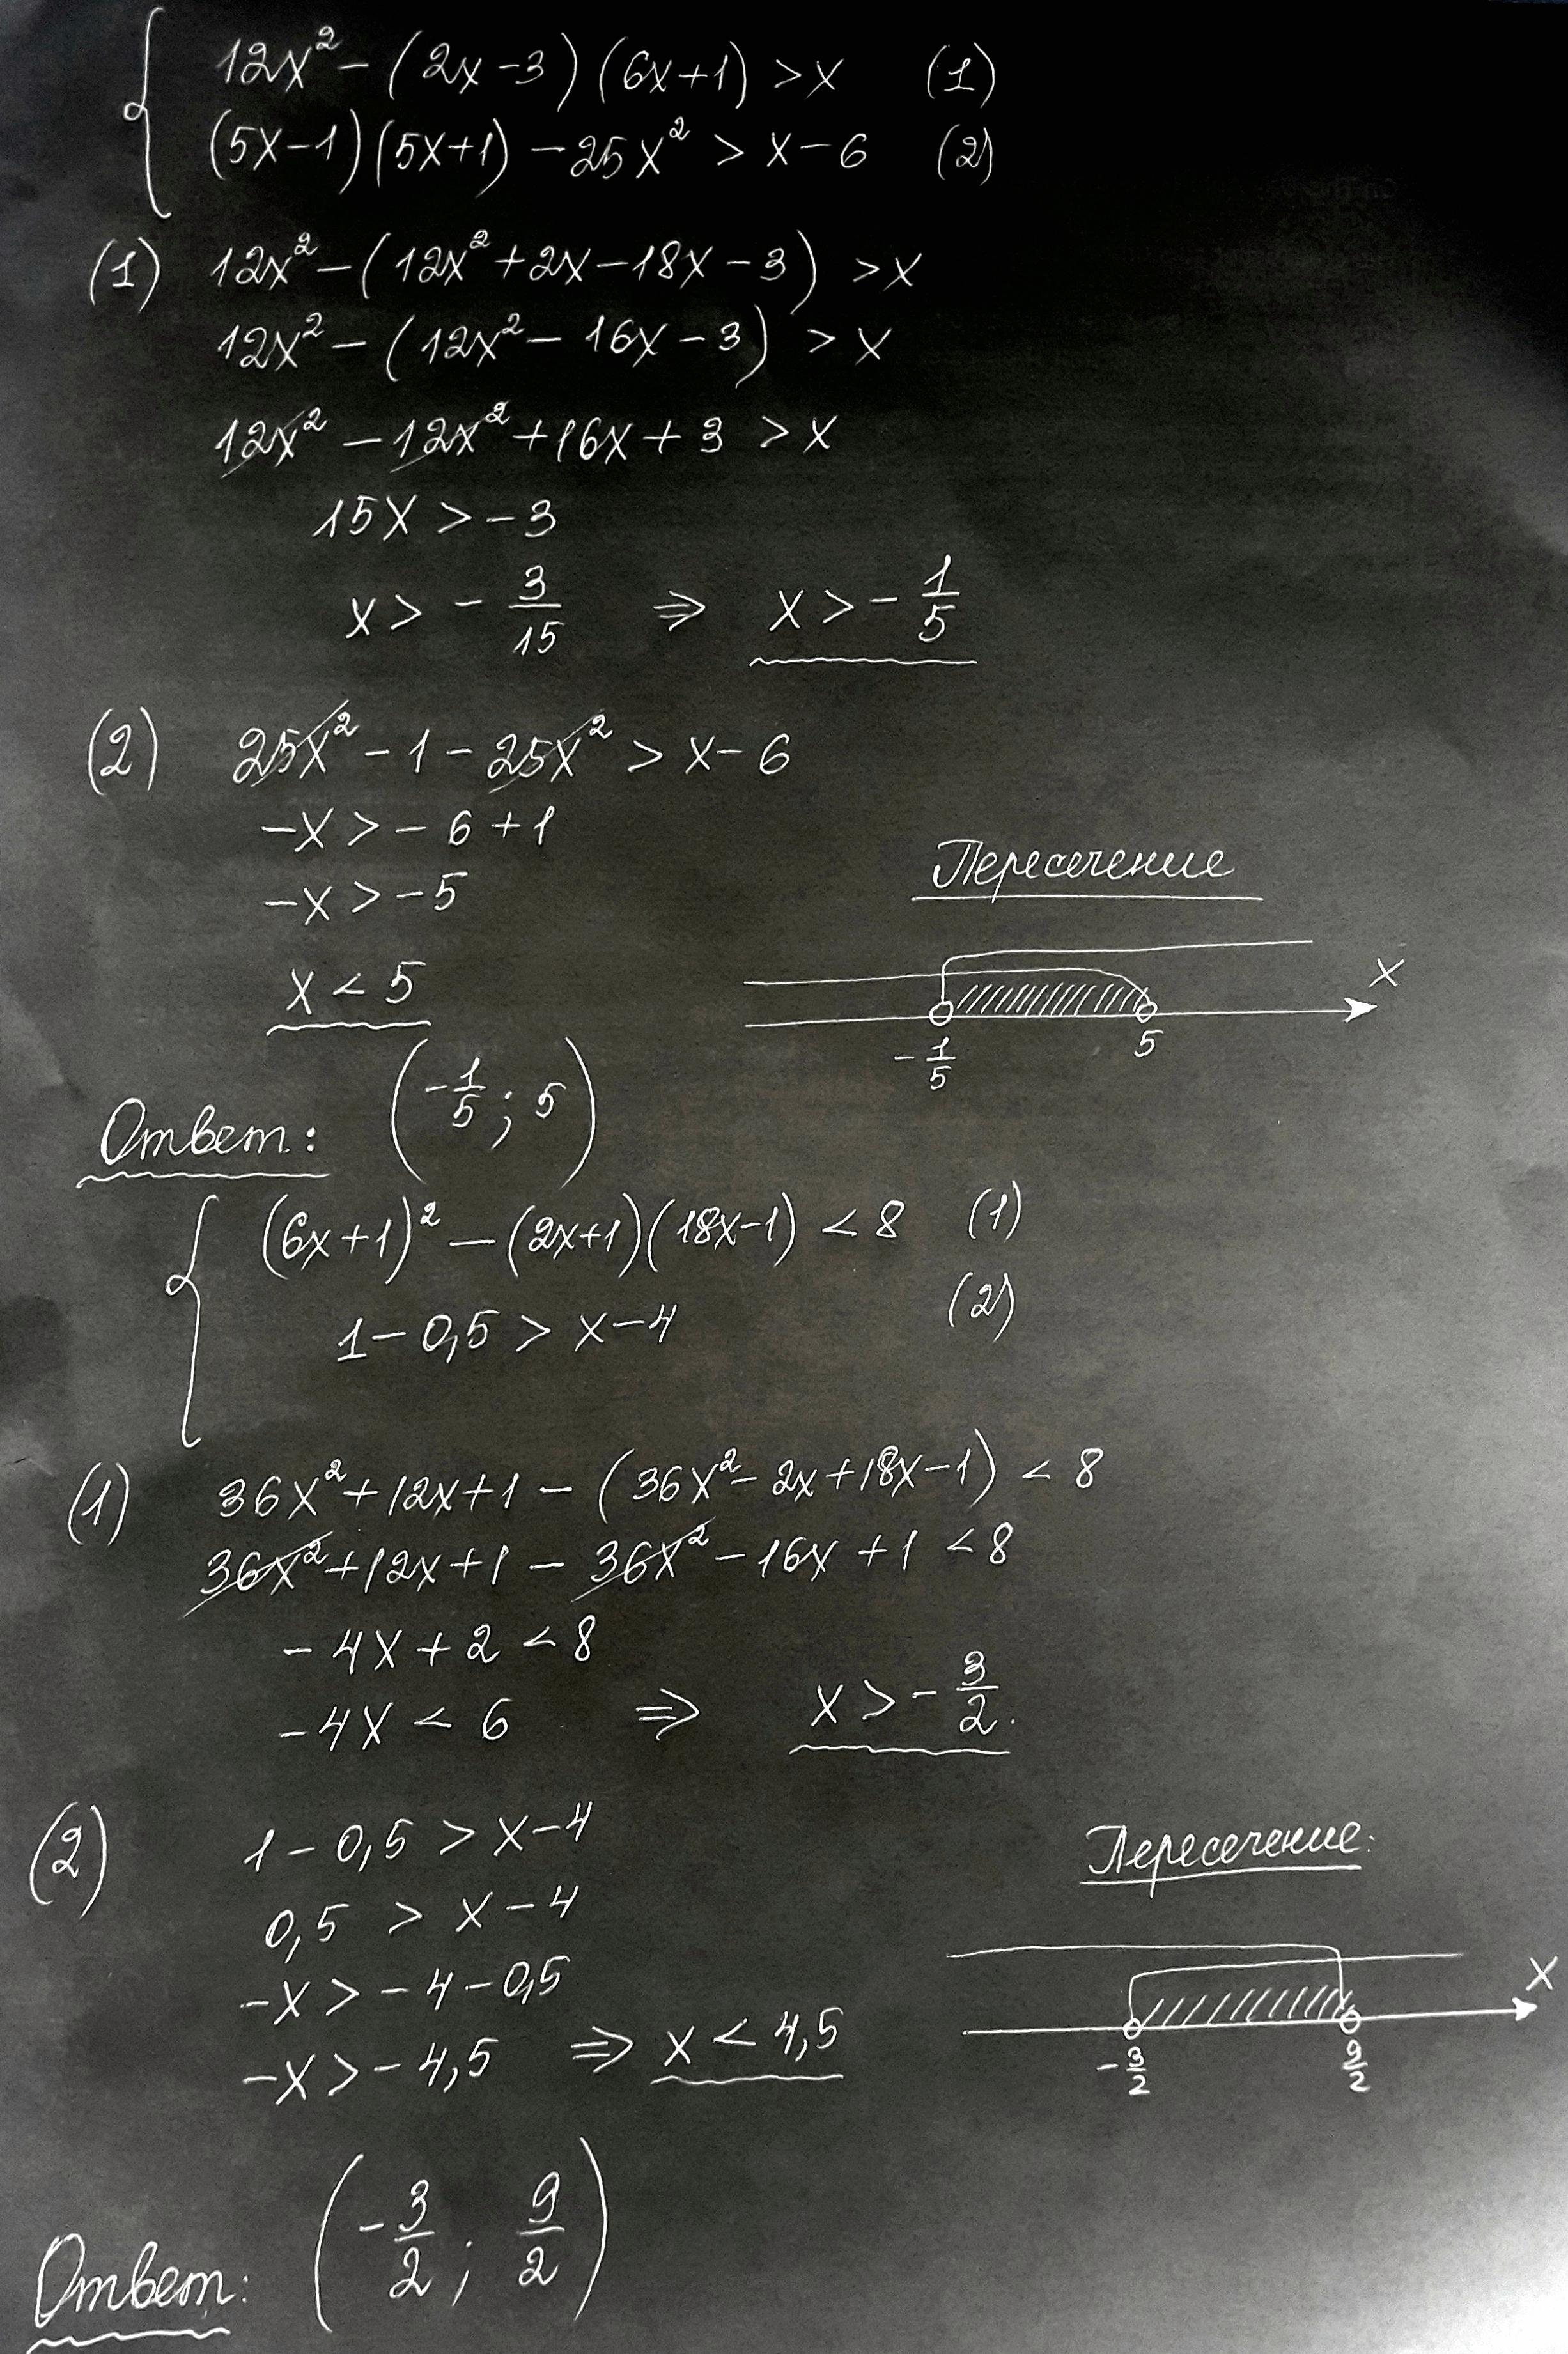 12x² - (2x-3)(6x+1) > x (1)
(5x-1)(5x+1) - 25x² > x-6 (2)
(1) 12x² - (12x² + 2x - 18x - 3) > x
12x² - (12x² - 16x - 3) > x
12x² - 12x² + 16x + 3 > x
15x > -3
x > - 3/15 ⇒ x > - 1/5
(2) 25x² - 1 - 25x² > x - 6
-x > - 6 + 1
-x > -5
Пересечение
x < 5
x
- 1/5 5
Ответ: (-1/5; 5)
(6x+1)² - (2x+1)(18x-1) < 8 (1)
1 - 0,5 > x-4 (2)
(1) 36x² + 12x + 1 - (36x² - 2x + 18x - 1) < 8
36x² + 12x + 1 - 36x² - 16x + 1 < 8
- 4x + 2 < 8
- 4x < 6 ⇒ x > - 3/2.
(2) 1 - 0,5 > x-4
Пересечение:
0,5 > x - 4
-x > - 4 - 0,5
x
-x > - 4,5 ⇒ x < 4,5
- 3/2 9/2
Ответ: (-3/2; 9/2)